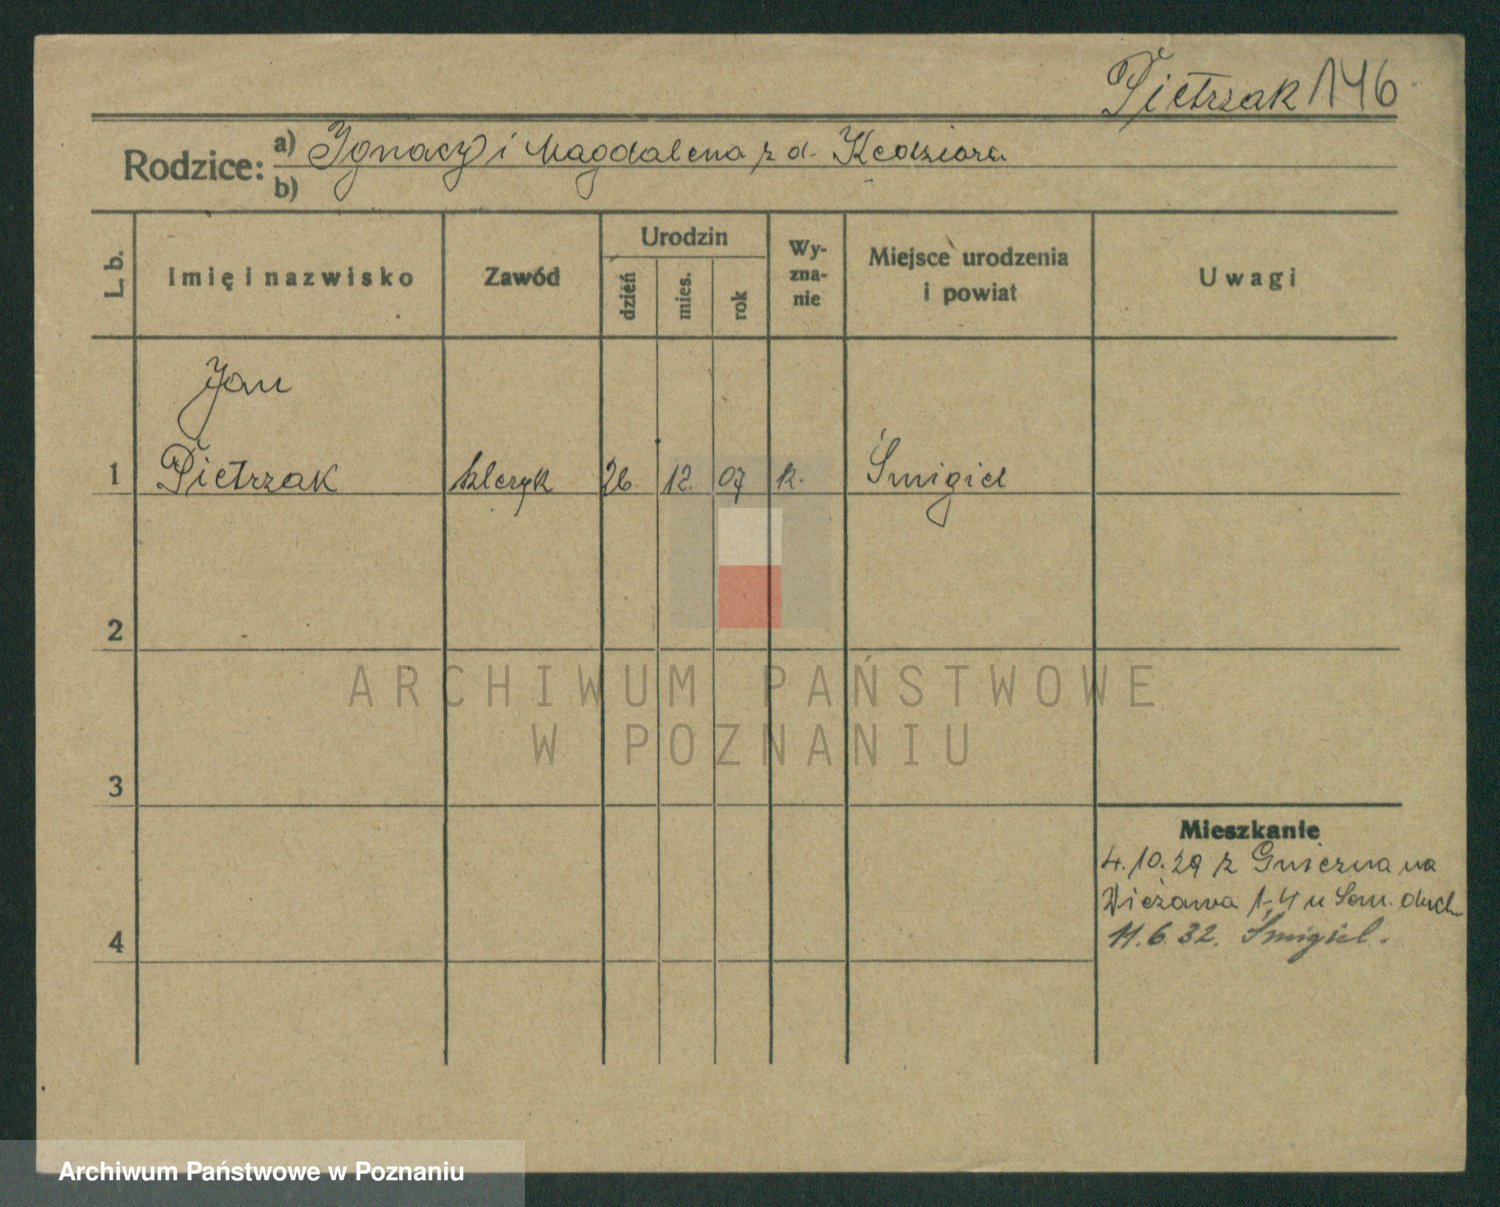 Pietrzak 146
Rodzice: a) Ignacy i Magdalena z d. Kedziora
b)
L. b.
Imię i nazwisko
Zawód
Urodzin
dzień
mies.
rok
Wy-
zna-
nie
Miejsce urodzenia
i powiat
Uwagi
Jan
1 Pietrzak kleryk 26. 12. 07 k. Śmigiel
2
ARCHIWUM PAŃSTWOWE
W POZNANIU
3
Mieszkanie
4.10.29 z Gniezna na
Wieżowa 1-4 u Sem. duch
11.6.32. Śmigiel.
4
Archiwum Państwowe w Poznaniu